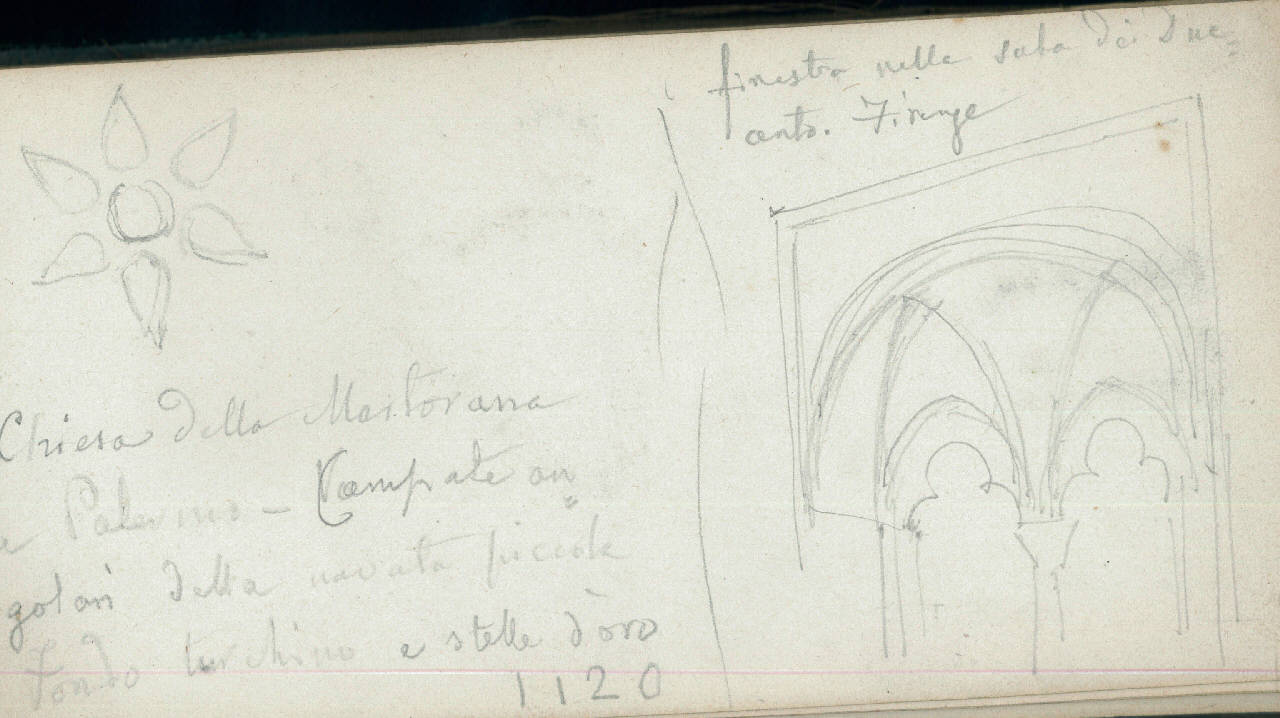 finestra nella sala dei Due=
cento. Firenze
Chiesa della Martorana
a Palermo – Campate an=
golari della navata piccola
Fondo turchino e stelle d'oro
1120